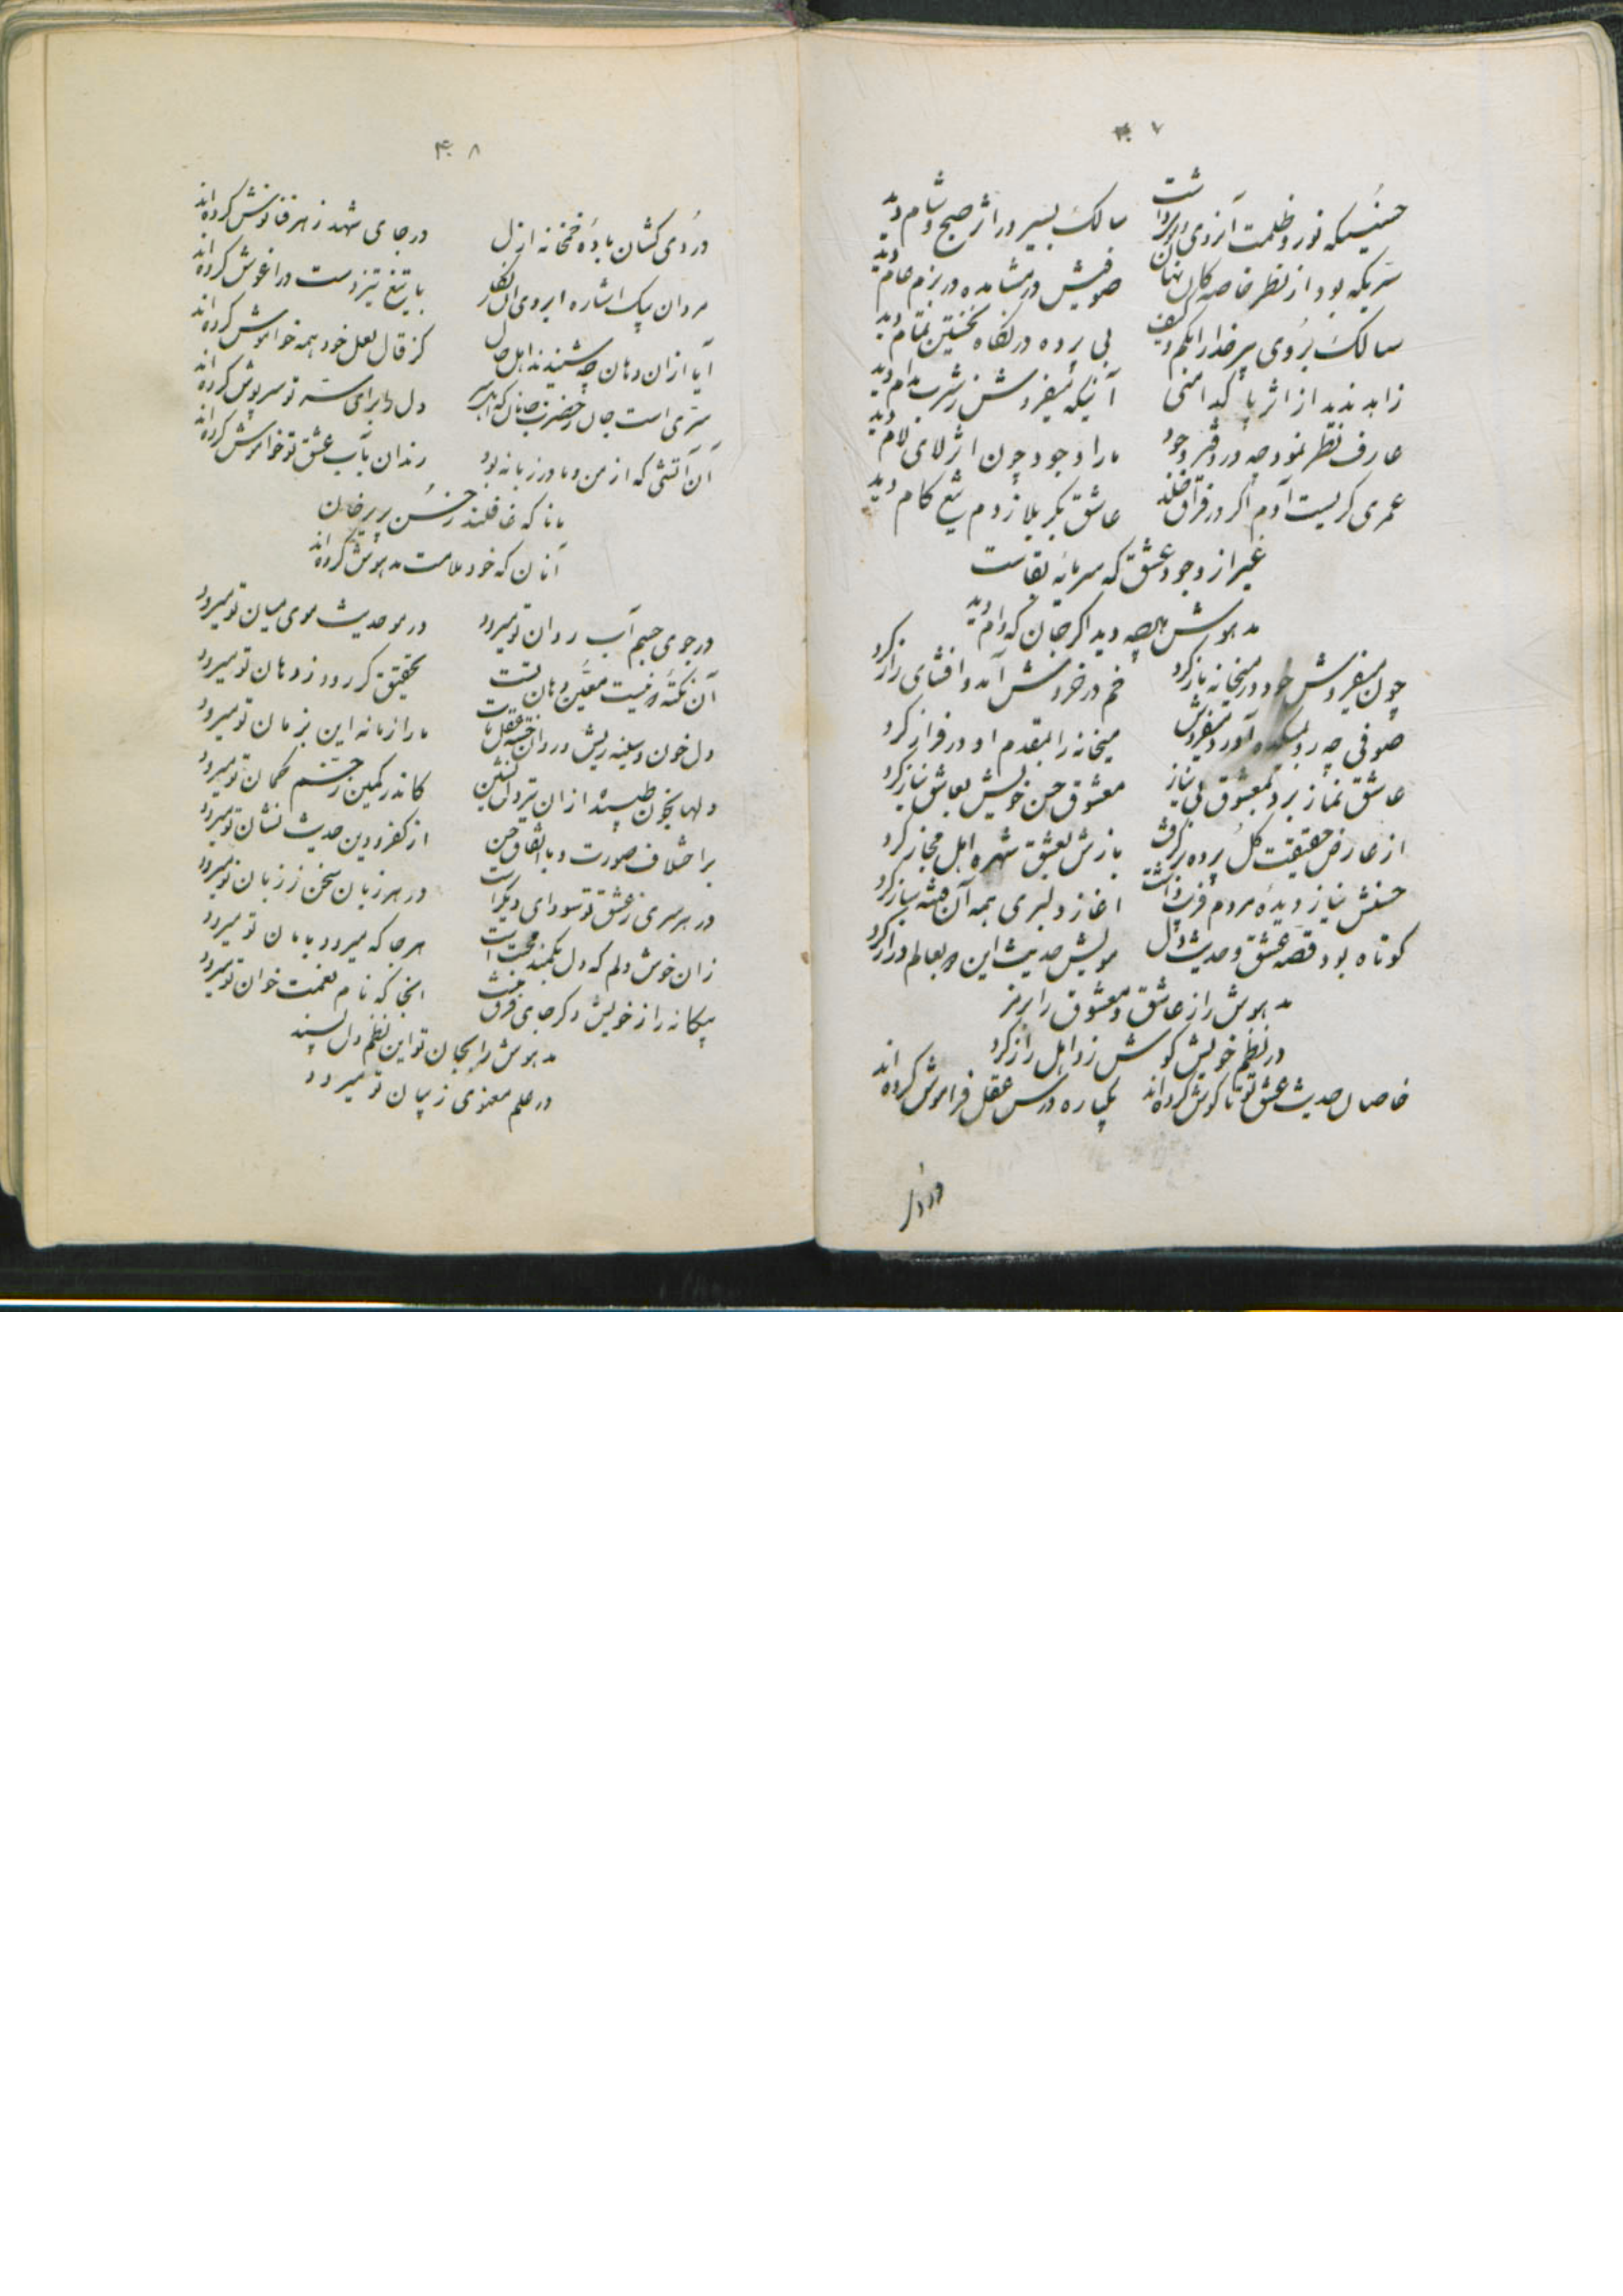 ۴۰۷
حسنیکه نور و ظلمت ازوی اثر داشت سالک بسیر در اثر صبح و شام دید
سریکه بود از نظر خاصه کان نهان صوفیش در مشاهده در بزم عام دید
سالک بروی پیر خدا را بکم و کیف بی پرده در نگاه نخستین تمام دید
زاهد ندید از اثر پاکدامنی آنیکه میفروش ز شرب مدام دید
عارف نظر نمود چه در دفتر وجود ما را وجود چون اثر لای لام دید
عمری گریست آدم اگر در فراق خلد عاشق بکربلا ز دم تیغ کام دید
غیر از وجود عشق که سرمایه بقاست
مدهوش هرچه دید اگر جان که دام دید
چون میفروش خود در میخانه باز کرد خم در خروش آمد و افشای راز کرد
صوفی چه رو بمیکده آورد میفروش میخانه را بمقدم او در فراز کرد
عاشق نماز برد بمعشوق بی نیاز معشوق حسن خویش بعاشق نیاز کرد
از عارض حقیقت گل پرده بر گرفت بازش بعشق شهره اهل مجاز کرد
حسنش نیاز دیده مردم فریب داشت اغاز دلبری بهمه آن فتنه ساز کرد
کوتاه بود قصه عشق و حدیث دل مویش حدیث این دو بعالم دراز کرد
مدهوش راز عاشق و معشوق را برمز
در نظم خویش گوش زد اهل راز کرد
خاصان حدیث عشق تو تا گوش کرده‌اند یکباره درس عقل فراموش کرده‌اند
۴۰۸
دردی کشان باده خمخانه ازل در جای شهد زهر فنا نوش کرده‌اند
مردان بیک اشاره ابروی ان نگار با تیغ تیز دست در اغوش کرده‌اند
آیا ازان دهان چه شنیدند اهل حال کز قال لعل خود همه خواموش کرده‌اند
سری است جان ز حضرت جانان که دل برای ستر تو سرپوش کرده‌اند
آن آتشی که از من و ما در زمانه بود رندان بآب عشق تو خواموش کرده‌اند
مانا که غافلند ز حسن پریرخان
آنان که خود ملامت مدهوش کرده‌اند
در جوی چشم آب روان تو میرود در مو حدیث موی میان تو میرود
آن نکته که نیست معین دهان تست تحقیق گر رود ز دهان تو میرود
دل خون و سینه ریش و روان خسته عقل مات ما را زمانه این بزمان تو میرود
دلها بخون طپیده ازان تیر دلنشین کاندر کمین ز چشم کمان تو میرود
بر اختلاف صورت و با اتفاق حسن از کفر و دین حدیث نشان تو میرود
در هر سری ز عشق تو سودای دیگر است در هر زبان سخن ز زبان تو میرود
زان خوش دلم که دل بکمند محبت است هرجا که میرود بامان تو میرود
بیگانه را ز خویش دگر جای فرق نیست انجا که نام نعمت خوان تو میرود
مدهوش را بجان تو این نظم دل پسند
در علم معنوی ز بیان تو میرود